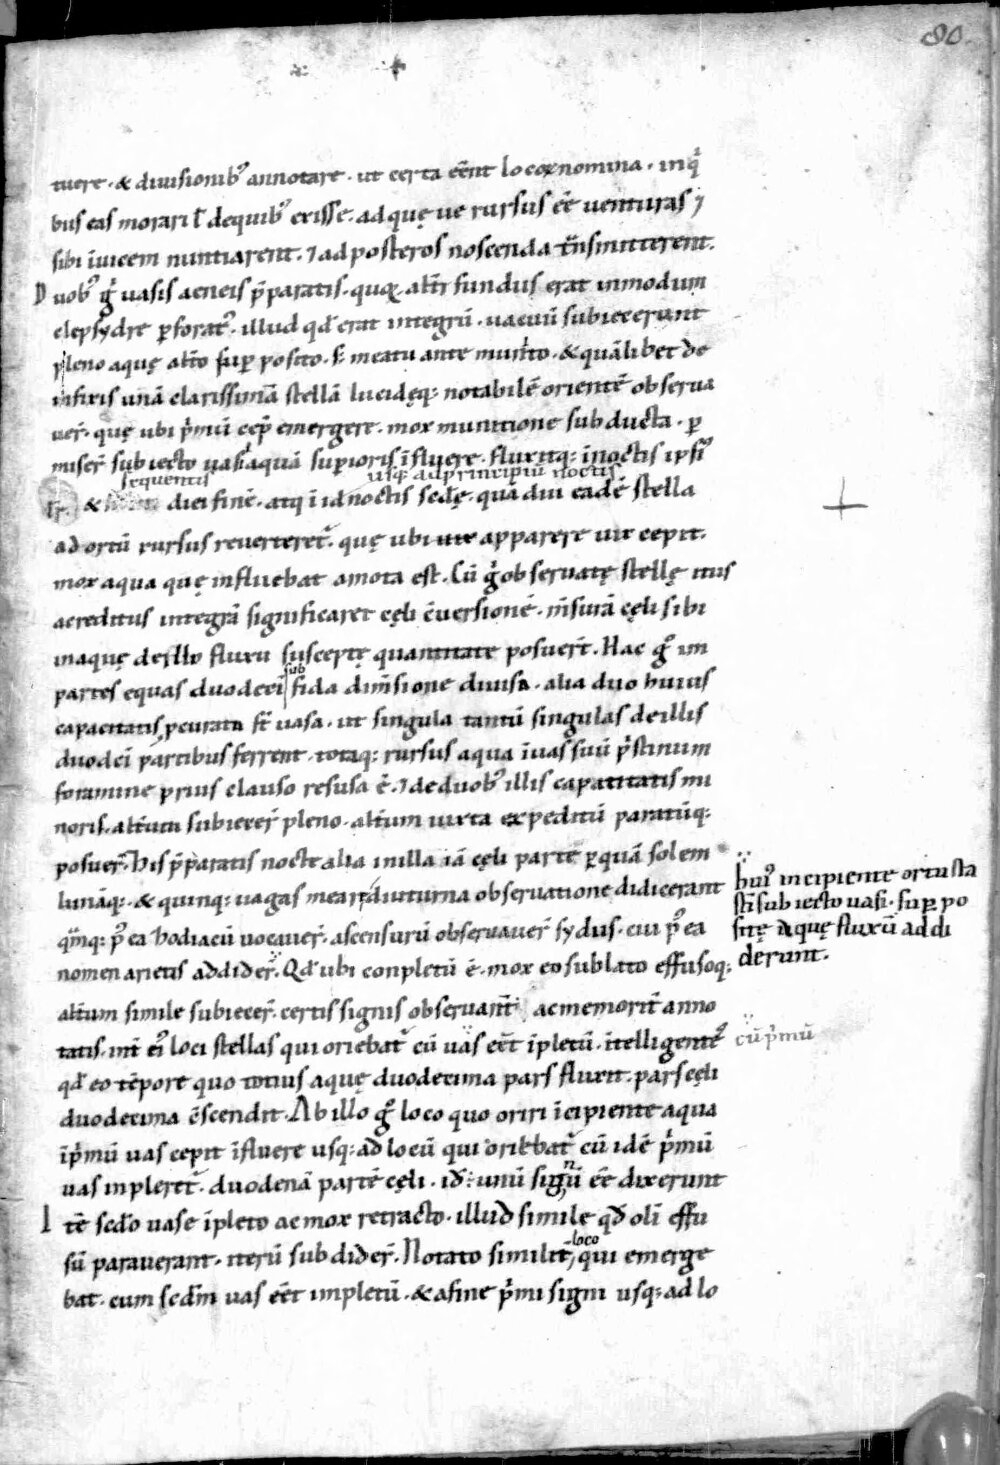 80
tuere · & diuisionib' annotare · ut certa eēnt locoꝝ nomina · in qͥ
bus eas morari ł de quib' exisse · ad quę ue rursus eē uenturas ⁊
sibi īuicem nuntiarent · ⁊ ad posteros noscenda tͣnsmitterent.
Duob' gͥ uasis aeneis p̄paratis · quoꝝ alt̄i fundus erat in modum
clepsydre ꝑforat' · illud qđ erat integrū · uacuū subiecerunt
pleno aquę alt̄o suꝑ posito · s; meatu ante munito · & quālibet de
infixis unā clarissimā stellā lucideq; notabilē orientē obserua
uer̄ · quę ubi pͥmū cep̄ emergere · mox munitione subducta · ꝑ
miser̄ subiecto uasi aquā supioris īfluere · fluxitq; ī noctis ipsi'
sequentis usq; ad principiū noctis
& diei finē · atq; ī id noctis sedę · quā diu eadē stella
ad ortū rursus reuerteret̄ · quę ubi uix apparere uix cepit.
mox aqua quę influebat amota est. Cū gͥ obseruatę stellę itus
ac reditus integrā significaret cęli ēuersionē · m̄surā cęli sibi
in aquę de illo fluxu susceptę quantitate posuer̄t. Hac gͦ in
sub
partes equas duodecī fida dim̄sione diuisa · alia duo huius
capacitatis ꝓcurata st̄ uasa · ut singula tantū singulas de illis
duodeī partibus ferrent · totaq; rursus aqua ī uas suū pͥstinum
foramine prius clauso refusa ē · ⁊ de duob' illis capatitatis mi
noris · alt̄um subiecer̄ pleno · alt̄um iuxta expeditū paratūq;
posuer̄. His p̄paratis nocte alia in illa iā cęli parte ꝑ quā solem
lunāq; · & quinq; uagas meare diuturna obseruatione didicerant
qͣmq; pͦ ea zodiacū uocauer̄ · ascensurū obseruauer̄ sydus · cui pͦ ea
nomen arietis addider̄. Qđ ubi conpletū ē · mox eo sublato effusoq;
alt̄um simile subiecer̄ · certis signis obseruant̄ ac memorit̄ anno
tatis · int̄ ei' loci stellas qui oriebat̄ cū uas eēt īpletū · ītelligente'
qđ eo tēpore quo totius aquę duodecima pars fluxit · pars cęli
duodecima c̄scendit. Ab illo gͦ loco quo oriri īcipiente aqua
īpͥmū uas cepit īfluere usq; ad locū qui oriebat̄ cū idē pͥmū
uas inpleret̄ · duodenā partē cęli · id; unū signū eē dixerunt
Itē sed̄o uase īpleto ac mox retracto · illud simile qđ olī effu
sū parauerant · iterū subdider̄. Notato similit̄ loco qui emerge
bat · cum sed̄m uas eēt inpletū · & a fine pͥmi signi usq; ad lo
hui' incipiente ortu sta
stī subiecto uasi · suꝑ po
sitę aquę fluxū addi
derunt.
cū pͥmū